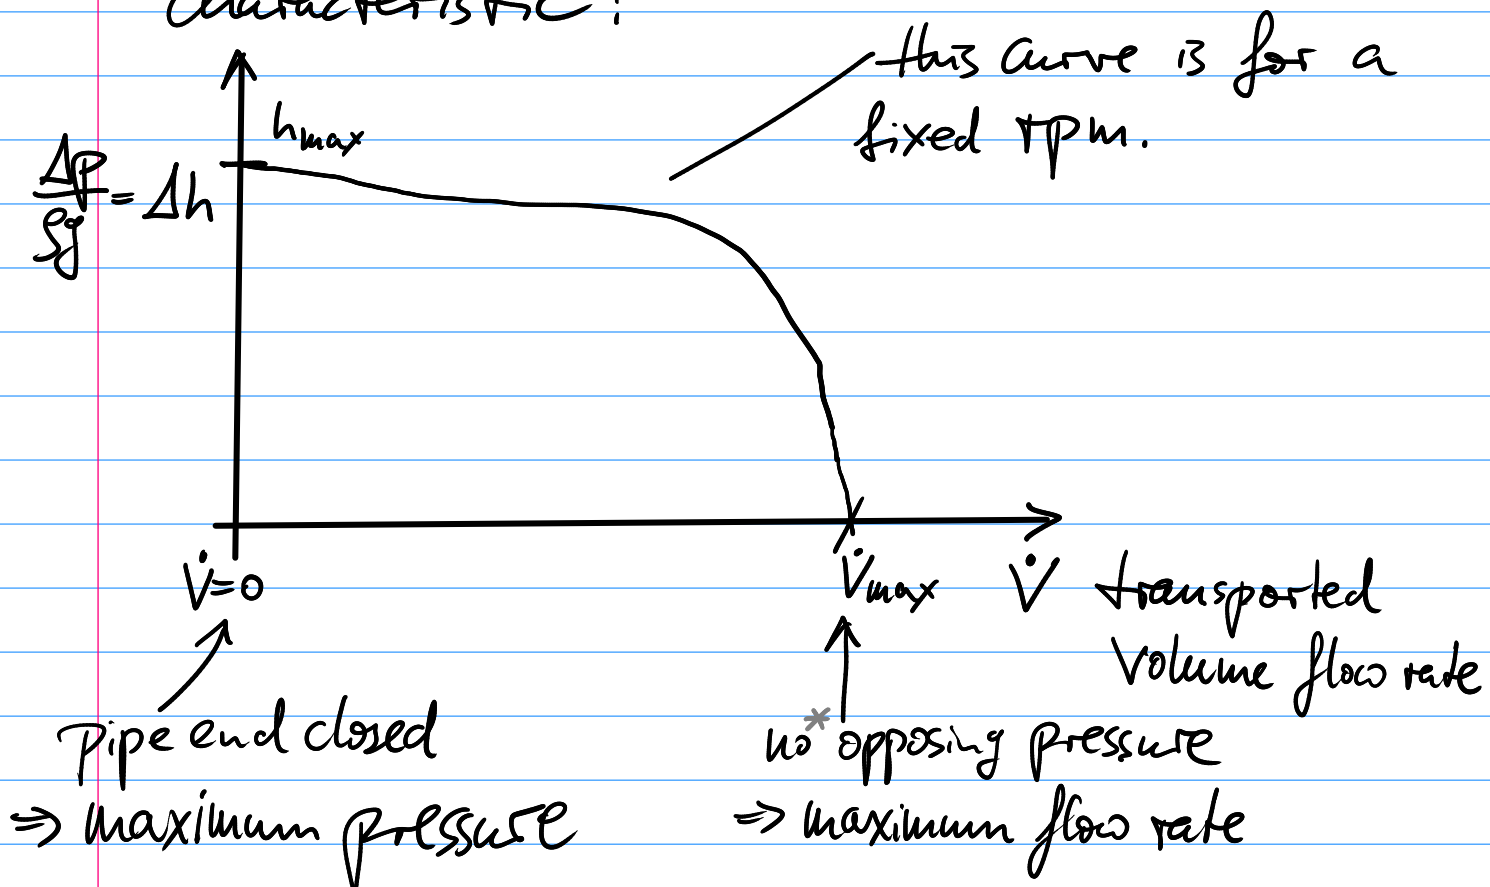 characteristic:
this curve is for a
fixed rpm.
hmax
Δp/ρg = Δh
V̇=0
V̇max
V̇ transported
volume flow rate
pipe end closed
⇒ maximum pressure
no* opposing pressure
⇒ maximum flow rate